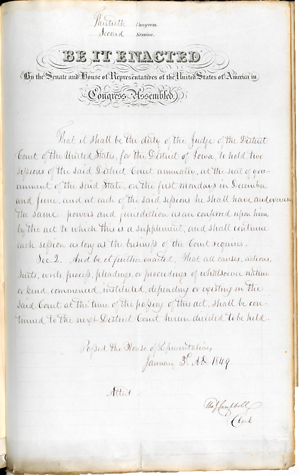 Thirtieth Congress
Second Session.
BE IT ENACTED
By the Senate and House of Representatives of the United States of America in
Congress Assembled
That it shall be the duty of the Judge of the District
Court of the United States, for the District of Iowa, to hold two
sessions of the said District Court annually, at the seat of gov-
ernment of the said State, on the first mondays in December
and June, and at each of the said sessions he shall have and exercise
the same powers and jurisdiction as are conferred upon him
by the act to which this is a supplement, and shall continue
each session as long as the business of the Court requires.
Sec 2. And be it further enacted, That all causes, actions
suits, writs, process, pleadings, or proceedings of whatsoever nature
or kind commenced, instituted, depending or existing in the
said Court at the time of the passing of this act, shall be con-
tinued to the next District Court herein directed to be held
Passed the House of Representatives
January 3d. AD. 1849
Attest
Tho. J. Campbell
Clerk